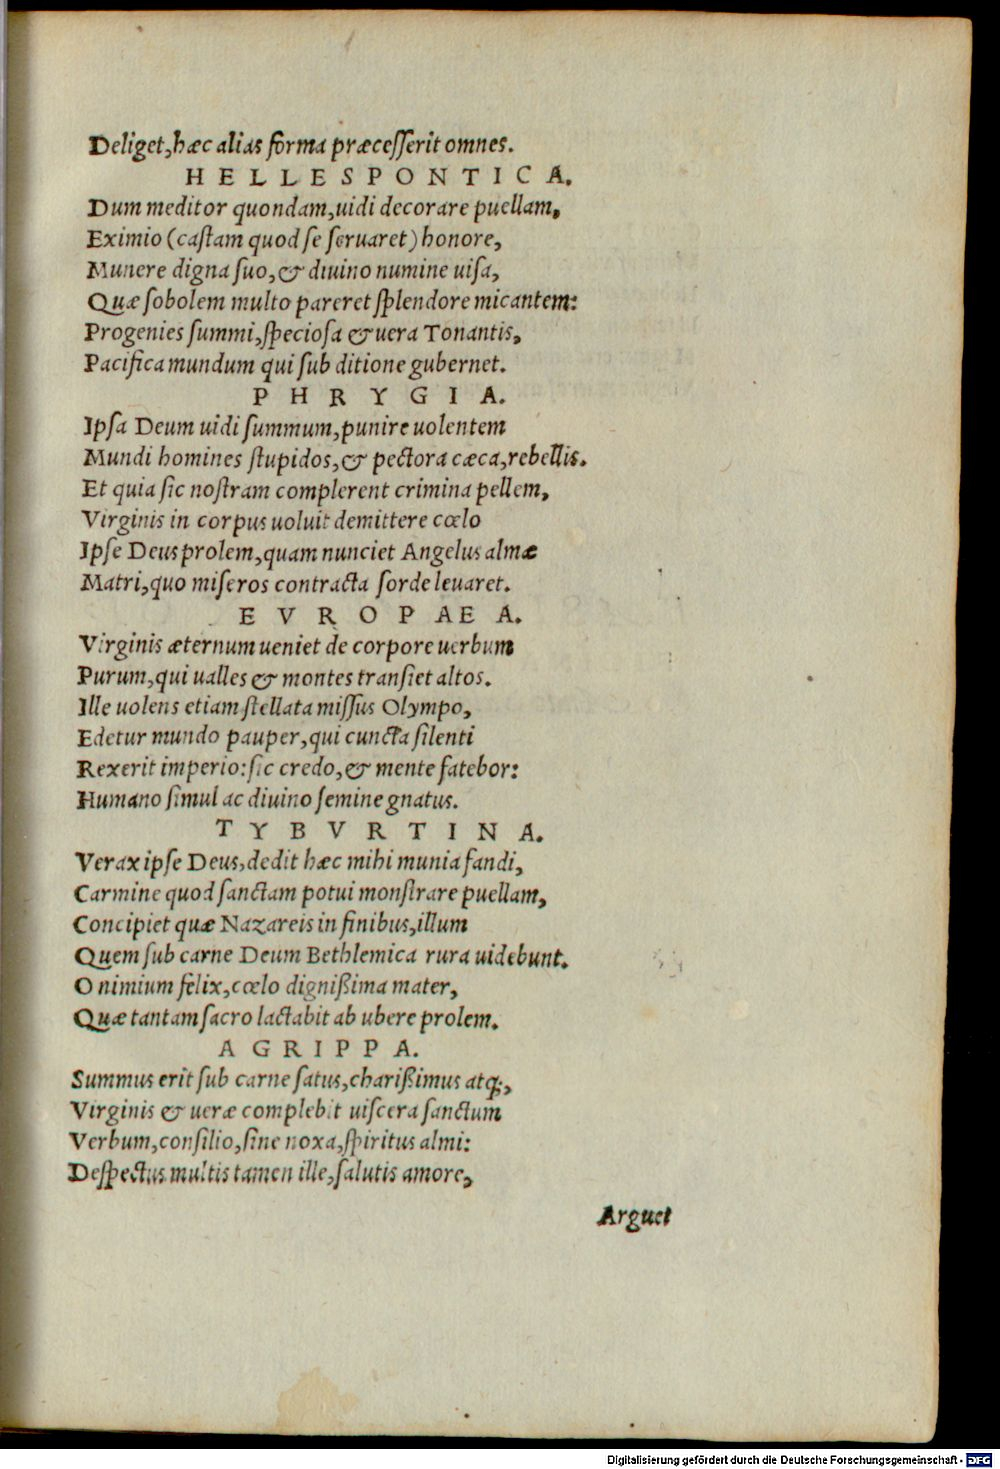 Deliget,hæc alias forma præceſſerit omnes.
HELLESPONTICA.
Dum meditor quondam,uidi decorare puellam,
Eximio (caſtam quod ſe ſeruaret) honore,
Munere digna ſuo,& diuino numine uiſa,
Quæ ſobolem multo pareret ſplendore micantem:
Progenies ſummi,ſpecioſa & uera Tonantis,
Pacifica mundum qui ſub ditione gubernet.
PHRYGIA.
Ipſa Deum uidi ſummum,punire uolentem
Mundi homines ſtupidos,& pectora cæca,rebellis.
Et quia ſic noſtram complerent crimina pellem,
Virginis in corpus uoluit demittere cœlo
Ipſe Deus prolem,quam nunciet Angelus almæ
Matri,quo miſeros contracta ſorde leuaret.
EVROPAEA.
Virginis æternum ueniet de corpore uerbum
Purum,qui ualles & montes tranſiet altos.
Ille uolens etiam ſtellata miſſus Olympo,
Edetur mundo pauper,qui cuncta ſilenti
Rexerit imperio:ſic credo,& mente fatebor:
Humano ſimul ac diuino ſemine gnatus.
TYBVRTINA.
Verax ipſe Deus,dedit hæc mihi munia fandi,
Carmine quod ſanctam potui monſtrare puellam,
Concipiet quæ Nazareis in finibus,illum
Quem ſub carne Deum Bethlemica rura uidebunt.
O nimium felix,cœlo digniſsima mater,
Quæ tantam ſacro lactabit ab ubere prolem.
AGRIPPA.
Summus erit ſub carne ſatus,chariſsimus atq;,
Virginis & ueræ complebit uiſcera ſanctum
Verbum,conſilio,ſine noxa,ſpiritus almi:
Deſpectus multis tamen ille,ſalutis amore,
Arguet
Digitalisierung gefördert durch die Deutsche Forschungsgemeinschaft - DFG